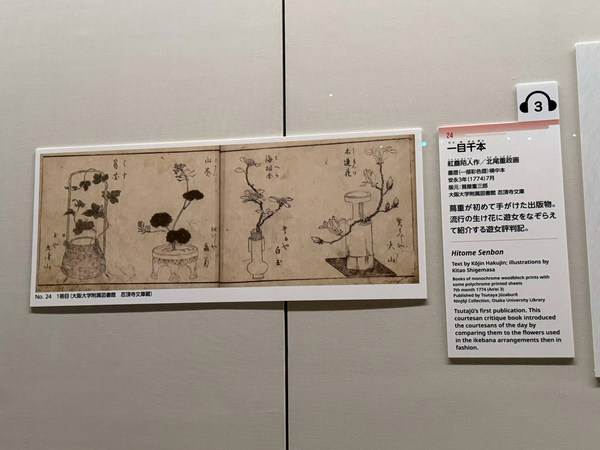 木蓮花
山葵
No. 24 1冊目（大阪大学附属図書館 忍頂寺文庫蔵）
3
24
一目千本
紅塵陌人作／北尾重政画
墨摺（一部彩色摺）横中本
安永3年（1774）7月
版元：蔦屋重三郎
大阪大学附属図書館 忍頂寺文庫
蔦重が初めて手がけた出版物。
流行の生け花に遊女をなぞらえ
て紹介する遊女評判記。
Hitome Senbon
Text by Kōjin Hakujin; illustrations by
Kitao Shigemasa
Books of monochrome woodblock prints with
some polychrome printed sheets
7th month 1774 (An'ei 3)
Published by Tsutaya Jūzaburō
Ninjōji Collection, Osaka University Library
Tsutajū's first publication. This
courtesan critique book introduced
the courtesans of the day by
comparing them to the flowers used
in the ikebana arrangements then in
fashion.